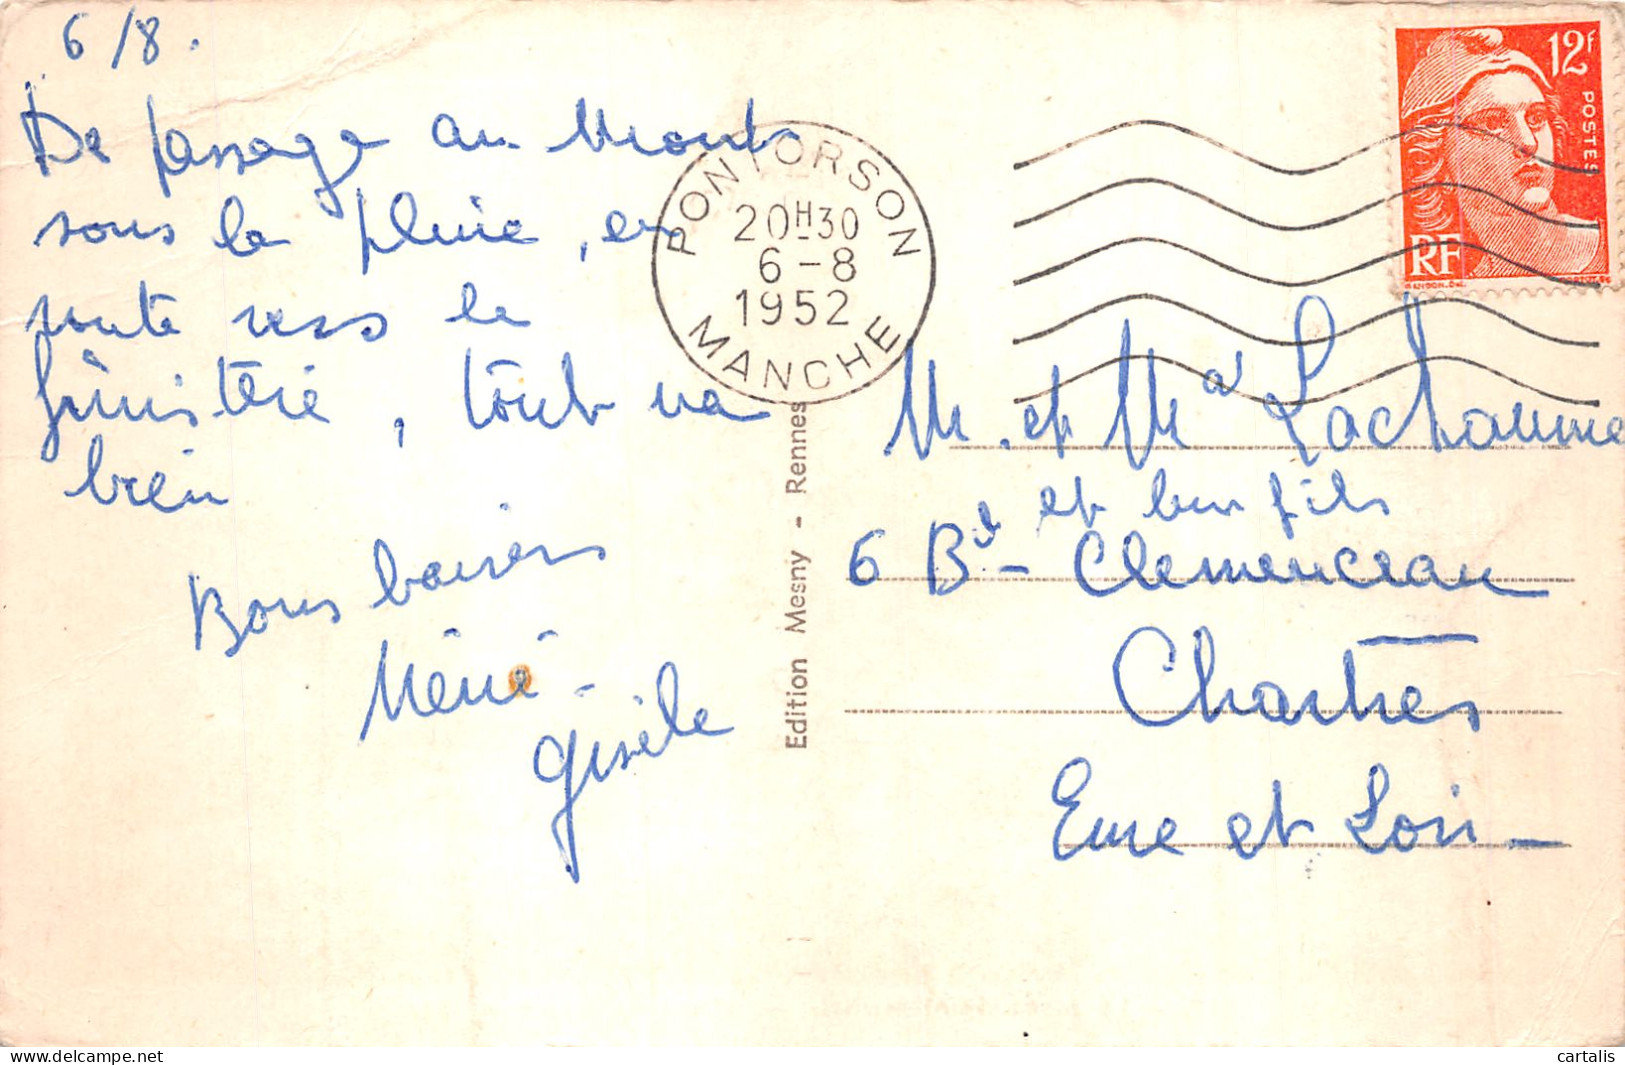 6/8.
De passage au Mont
sous la pluie, en
route vers le
finistère, tout va
bien
Bons baisers
Gisèle
PONTORSON
20H30
6-8
1952
MANCHE
12F
POSTES
RF
Edition Mesny - Rennes
M. et Md Lachaume
et leur fils
6 Bd - Clemenceau
Chartres
Eure et Loir -
cartalis